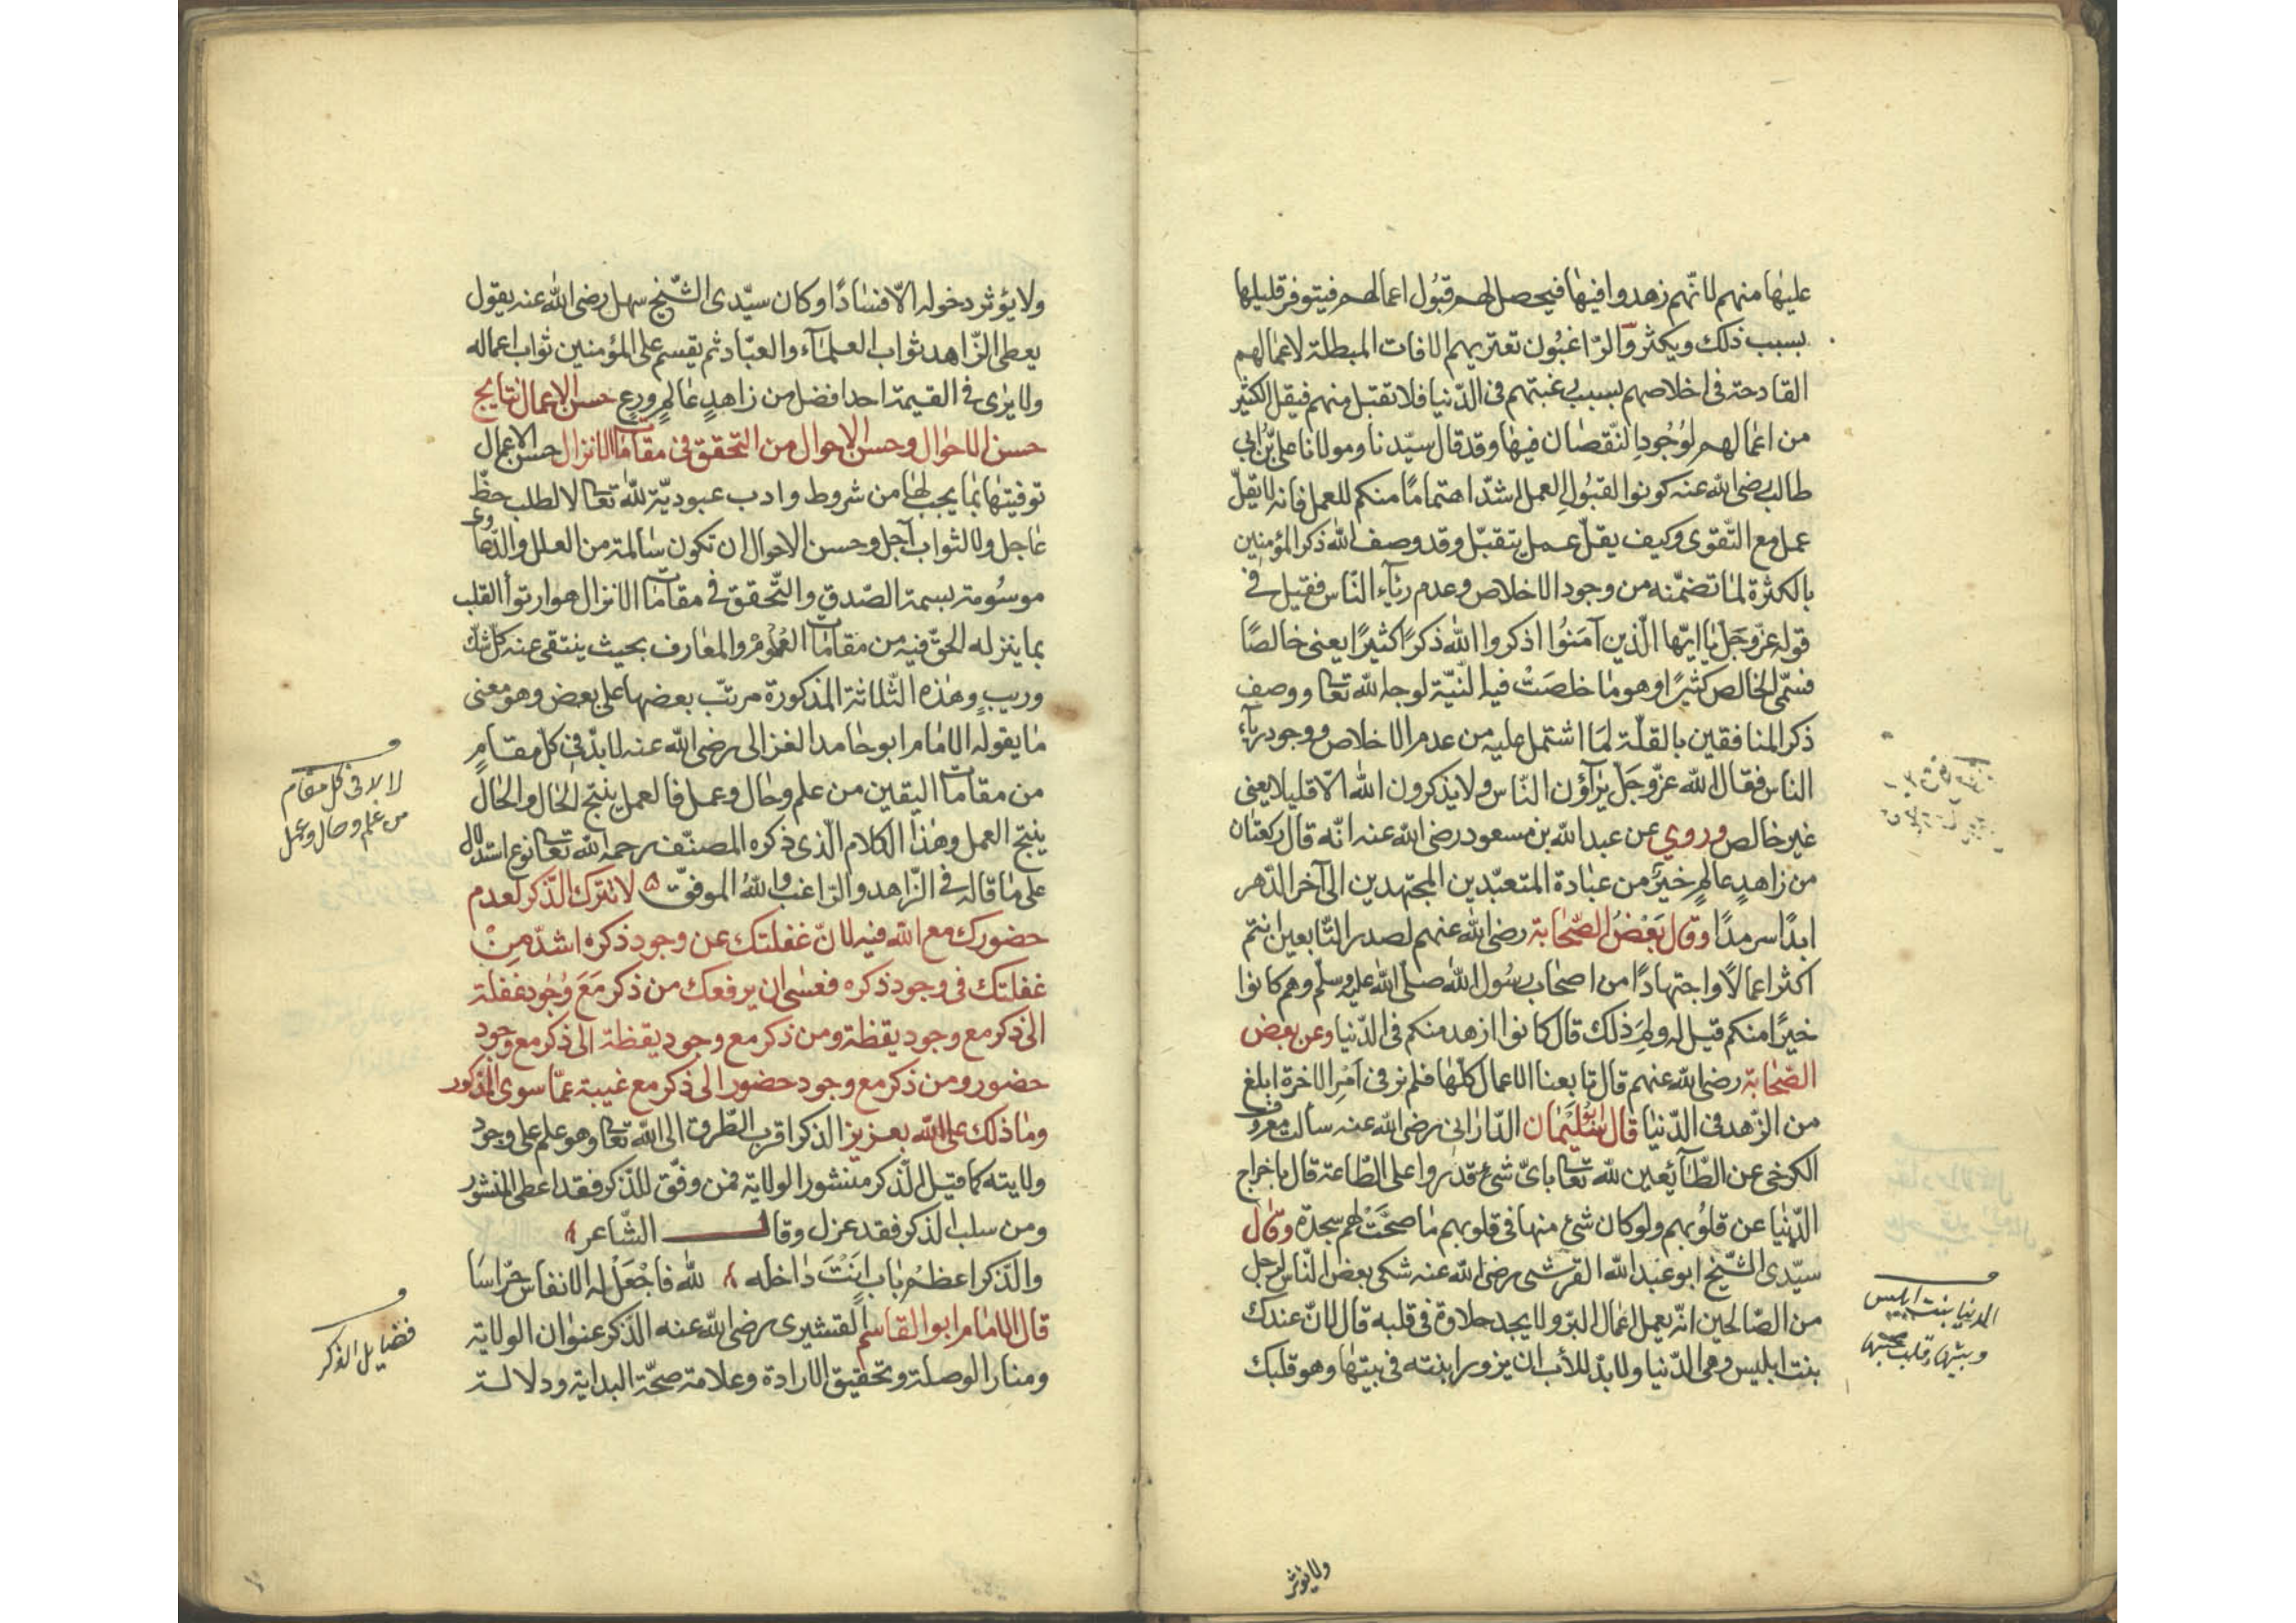 عليها منهم لانّهم زهدوا فيها فيحصل لهم قبُول اعمالهم فيتوفر قليلها
بسبب ذلك ويكثر والرّاغبُون تعتريهم الافات المبطلة لاعمالهم
القادحة فى اخلاصهم بسبب رغبتهم فى الدّنيا فلا تقبل منهم فيقل الكثير
من اعمالهم لوُجُودِ النّقصان فيها وقد قال سيّدنا ومولانا علىّ بن ابي
طالب رضى الله عنه كونوا لقبُولِ العمل اشدّ اهتمامًا منكم للعمل فانه لا يقلّ
عمل مع التّقوى وكيف يقلّ عمل يتقبّل وقد وصف الله ذكر المؤمنين
بالكثرة لما تضمّنه من وجود الاخلاص وعدم رئآء النّاس فقيل فى
قوله عزّ وجَلّ يا ايّها الّذين آمَنُوا اذكروا الله ذكرًا كثيرًا يعنى خالصًا
فسمّى الخالص كثيرًا وهو ما خلصَتْ فيه النّيّة لوجه الله تعا ووصف
ذكر المنافقين بالقلّة لمَا اشتمل عليه من عدم الاخلاص ووجود ريآء
الناس فقال الله عزّ وجَلّ يرآؤن النّاس ولا يذكرون الله الّا قليلا يعنى
غير خالص وروي عن عبد الله بن مسعود رضى الله عنه انّه قال ركعتان
من زاهدٍ عالمٍ خيرٌ من عبادة المتعبّدين المجتهدين الى آخر الدّهر
ابدًا سرمدًا وقال بَعْضُ الصّحابة رضى الله عنهم لصدر التّابعين انتم
اكثر اعمالًا واجتهادًا من اصحاب رسُول الله صلّى الله عليه وسلّم وهم كانوا
خيرًا منكم قيل له ولِمَ ذلك قال كانوا ازهد منكم فى الدّنيا وعن بعض
الصّحابة رضى الله عنهم قال تابعنا الاعمال كلّها فلم نر فى اَمْرِ الاخرة ابلغ
من الزّهد فى الدّنيا قال سُلَيْمان الدّارانى رضى الله عنه سالت معروف
الكرخى عن الطّآئعين لله تعا باىّ شئ قدروا على الطّاعة قال باخراج
الدّنيا عن قلُوبهم ولو كان شئ منها فى قلوبهم ما صحّتْ لهم سجدة وقال
سيّدى الشّيخ ابو عبد الله القرشى رضى الله عنه شكى بعض النّاس لرجل
من الصّالحين انّه يعمل اعمال البرّ ولا يجد حلاوة فى قلبه قال لانّ عندك
بنت ابليس وهى الدّنيا ولا بدّ للأب ان يزور ابنته فى بيتها وهو قلبك
الدنيا بنت ابليس
وبيتها قلب محبيها
ولا يؤثر
ولا يؤثر دخوله الّا فسادًا وكان سيّدى الشّيخ سهل رضى الله عنه يقول
يعطى الزّاهد ثواب العلمآء والعبّاد ثم يقسم على المؤمنين ثواب اعماله
ولا يرى فى القيمة احد افضل من زاهدٍ عالمٍ ورعٍ حسن الاعمال نتايج
حسن الاحوال وحسن الاحوال من التحقق فى مقامات الانزال حسن الاعمال
توفيتها بما يجب لها من شروط وادب عبوديّة لله تعا لا لطلب حظّ
عاجل ولا لثواب آجل وحسن الاحوال ان تكون سالمة من العلل والدّعاوى
موسُومة بسمة الصّدق والتّحقق فى مقامات الانزال هو ارتوأ القلب
بما ينزله الحقّ فيه من مقامات العُلوم والمعارف بحيث ينتفى عنه كلّ شكّ
وريبٍ وهذه الثّلاثة المذكورة مرتبّ بعضها على بعض وهو معنى
ما يقوله الامام ابو حامد الغزالى رضى الله عنه لا بدّ فى كلّ مقامٍ
من مقامات اليقين من علم وحال وعمل فالعمل ينتج الحال والحال
ينتج العمل وهذا الكلام الّذى ذكره المصنّف رحمه الله تعا نوع استدلال
على ما قاله فى الزّاهد والرّاغب والله الموفّق ۵ لا تترك الذّكر لعدم
حضورك مع الله فيه لانّ غفلتك عن وجود ذكره اشدّ مِنْ
غفلتك فى وجود ذكره فعسى ان يرفعك من ذكر مَعَ وُجود غفلة
الى ذكر مع وجود يقظة ومن ذكر مع وجود يقظة الى ذكر مع وجود
حضور ومن ذكر مع وجود حضور الى ذكر مع غيبة عمّا سوى المذكور
وما ذلك على الله بعزيز الذكر اقرب الطّرق الى الله تعا وهو علم على وجود
ولايته كما قيل الذّكر منشور الولاية فمن وفّق للذّكر فقد اعطى المنشور
ومن سلب الذكر فقد عزل وقال الشّاعر
والذّكر اعظم باب انتَ داخله لله فاجْعَلْ له الانفاس حرّاسَا
قال الامام ابو القاسم القشيرى رضى الله عنه الذّكر عنوان الولاية
ومنار الوصلة وتحقيق الارادة وعلامة صحّة البداية ودلالة
فى كل مقام
من علم وحال وعمل
فضايل الذكر